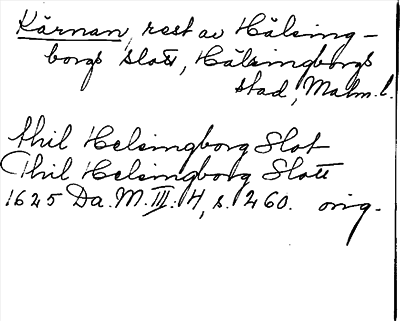 Kärnan, rest av Hälsing-
borgs slott, Hälsingborgs
stad, Malm. l.
thil Helsingborg Slot
Thil Helsingborg Slott
1625 Da. M. III: 4, s. 260. orig.